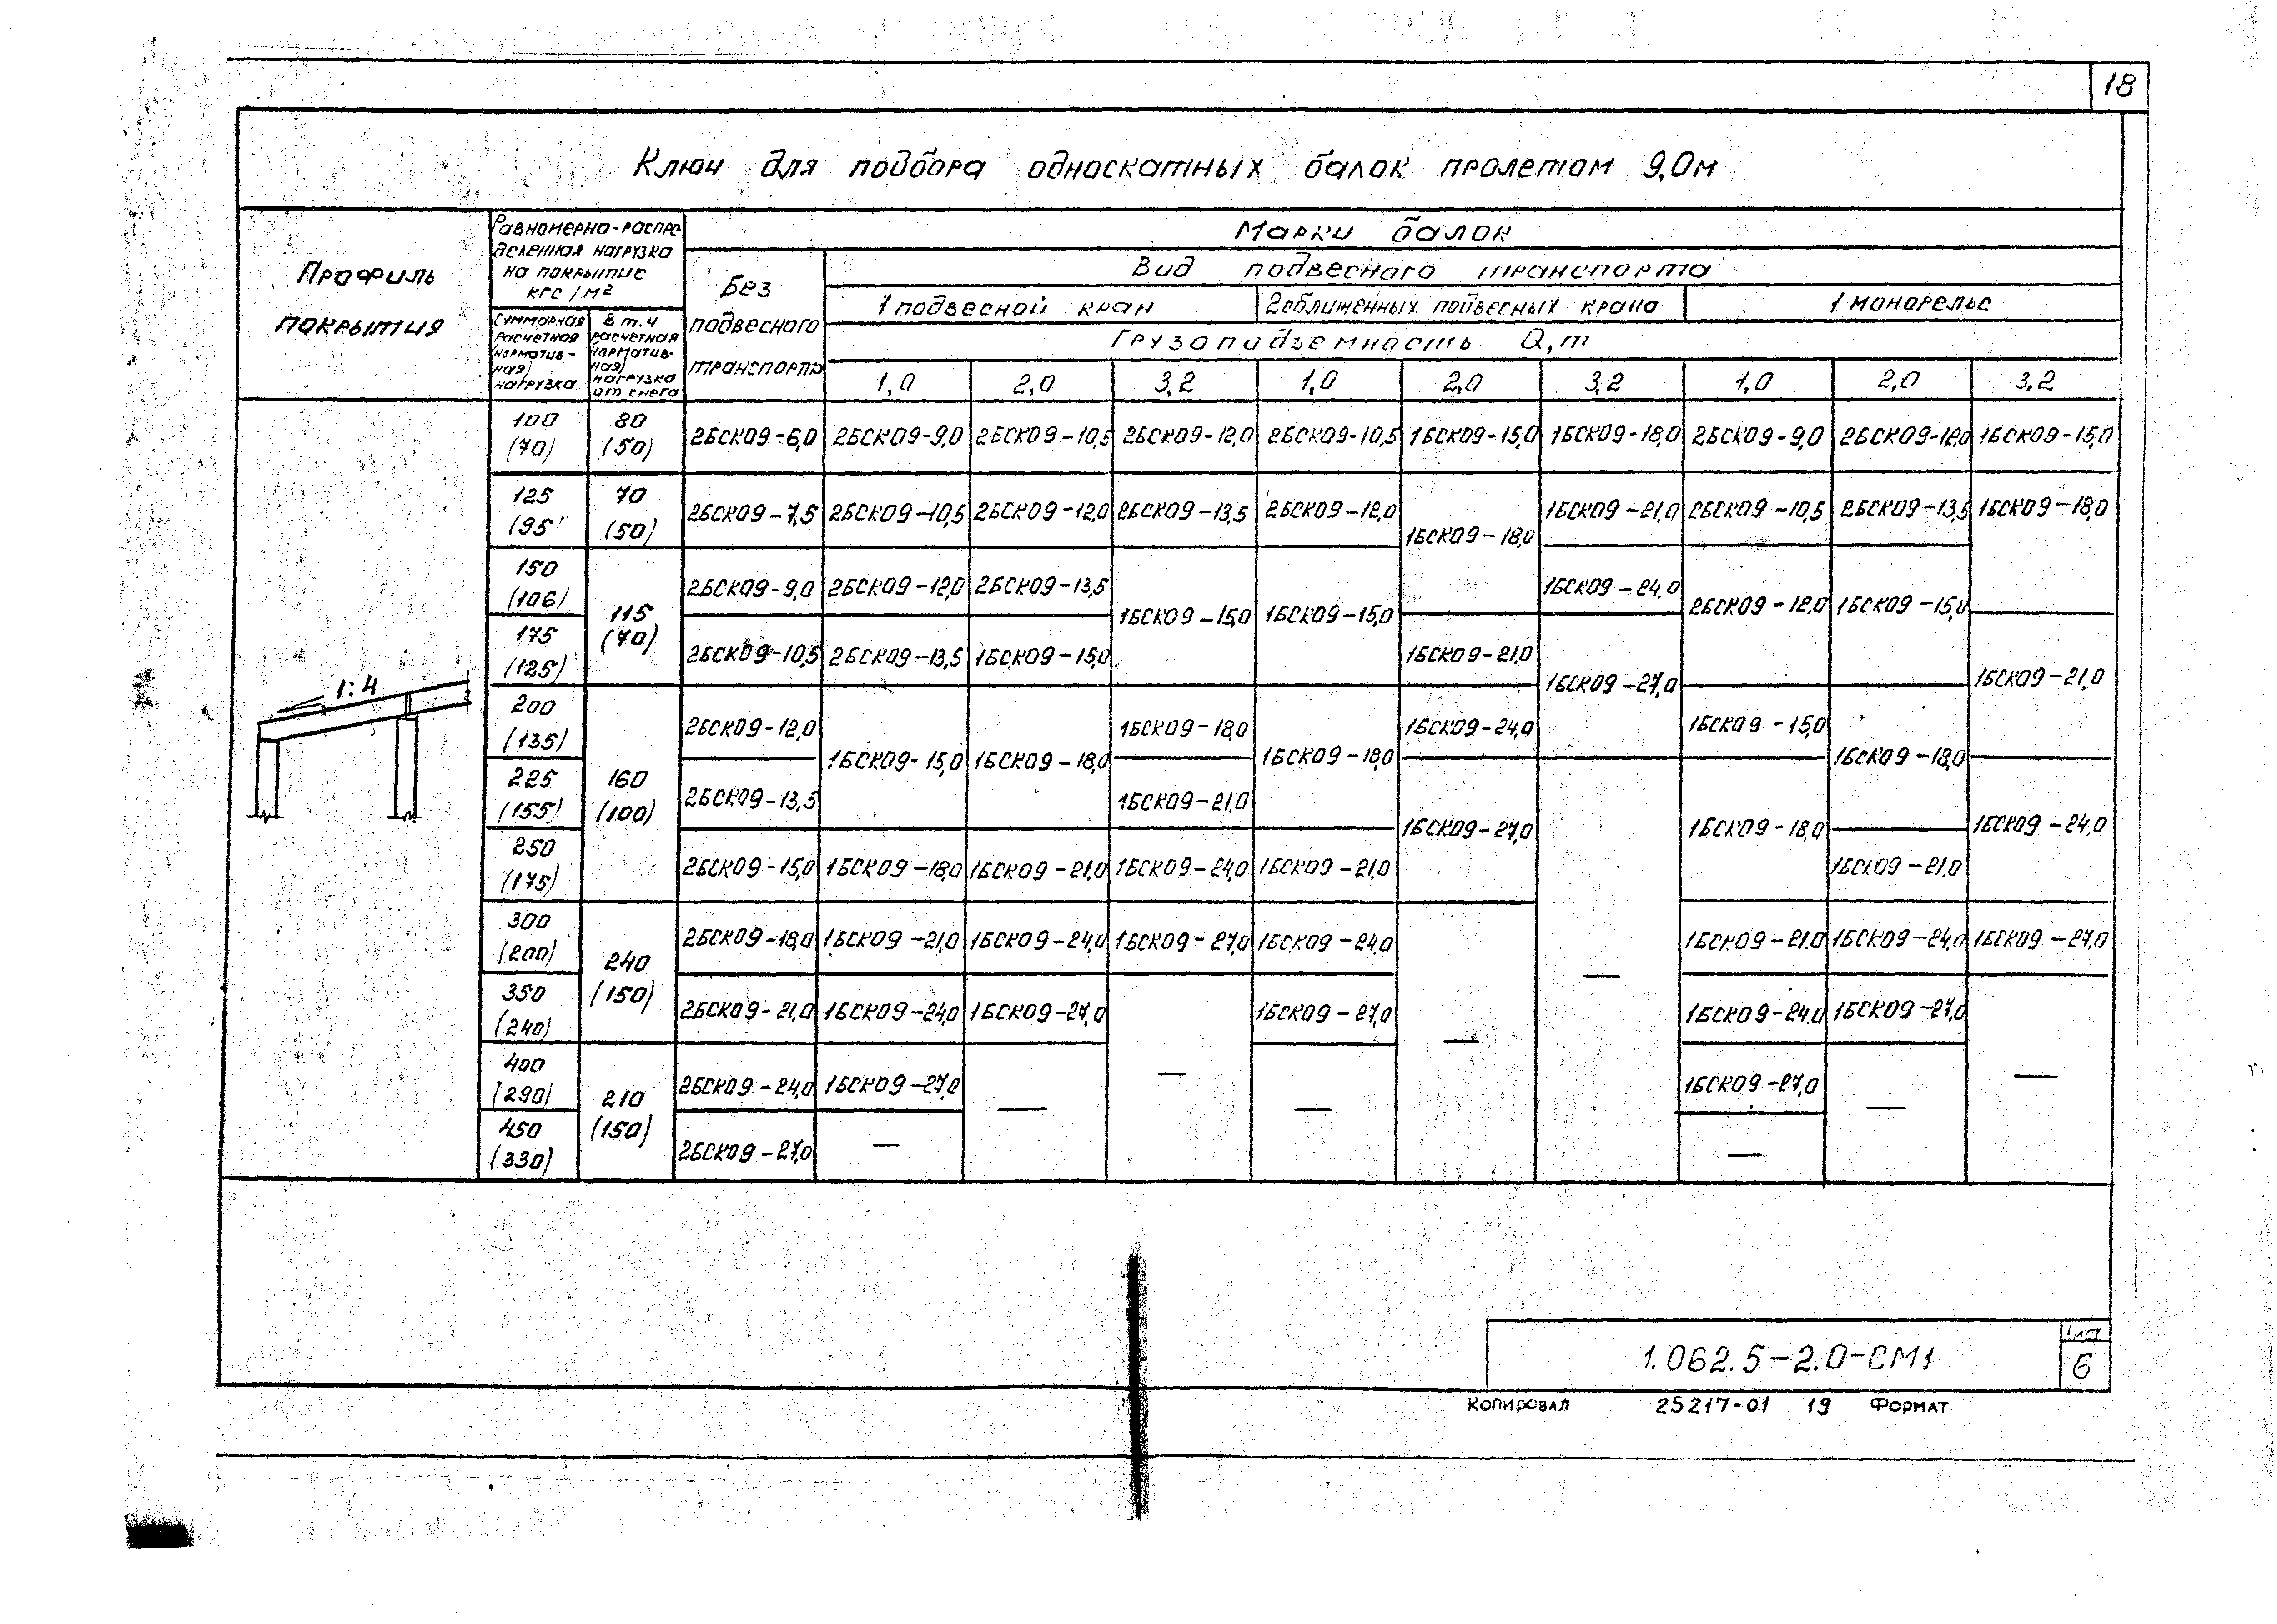 18
Ключи для подбора односкатных балок пролетом 9,0м
Профиль покрытия
Равномерно-распре-
деленная нагрузка
на покрытие
кгс/м²
Суммарная
расчетная
(норматив-
ная)
нагрузка
В т.ч
расчетная
(норматив-
ная)
нагрузка
от снега
Марки балок
Без
подвесного
транспорта
Вид подвесного транспорта
1 подвесной кран
2 сближенных подвесных крана
1 монорельс
Грузоподъемность Q,т
1,0 2,0 3,2 1,0 2,0 3,2 1,0 2,0 3,2
100 80
(70) (50)
2БСК09-6,0 2БСК09-9,0 2БСК09-10,5 2БСК09-12,0 2БСК09-10,5 1БСК09-15,0 1БСК09-18,0 2БСК09-9,0 2БСК09-12,0 1БСК09-15,0
125 70
(95) (50)
2БСК09-7,5 2БСК09-10,5 2БСК09-12,0 2БСК09-13,5 2БСК09-12,0 1БСК09-21,0 2БСК09-10,5 2БСК09-13,5 1БСК09-18,0
1БСК09-18,0
150
(106)
2БСК09-9,0 2БСК09-12,0 2БСК09-13,5 1БСК09-24,0
115
(70)
1БСК09-15,0 1БСК09-15,0 2БСК09-12,0 1БСК09-15,0
175
(125)
2БСК09-10,5 2БСК09-13,5 1БСК09-15,0 1БСК09-21,0
1БСК09-27,0 1БСК09-21,0
1:4
200
(135)
2БСК09-12,0 1БСК09-18,0 1БСК09-24,0 1БСК09-15,0
1БСК09-15,0 1БСК09-18,0 1БСК09-18,0 1БСК09-18,0
225 160
(155) (100)
2БСК09-13,5 1БСК09-21,0
1БСК09-27,0 1БСК09-18,0 1БСК09-24,0
250
(175)
2БСК09-15,0 1БСК09-18,0 1БСК09-21,0 1БСК09-24,0 1БСК09-21,0 1БСК09-21,0
300
(200)
2БСК09-18,0 1БСК09-21,0 1БСК09-24,0 1БСК09-27,0 1БСК09-24,0 1БСК09-21,0 1БСК09-24,0 1БСК09-27,0
240
(150)
—
350
(240)
2БСК09-21,0 1БСК09-24,0 1БСК09-27,0 1БСК09-27,0 1БСК09-24,0 1БСК09-27,0
—
400
(290)
2БСК09-24,0 1БСК09-27,0 — 1БСК09-27,0 —
210
(150)
— — —
450
(330)
2БСК09-27,0 — —
1.062.5-2.0-СМ1
Лист
6
Копировал 25217-01 19 Формат